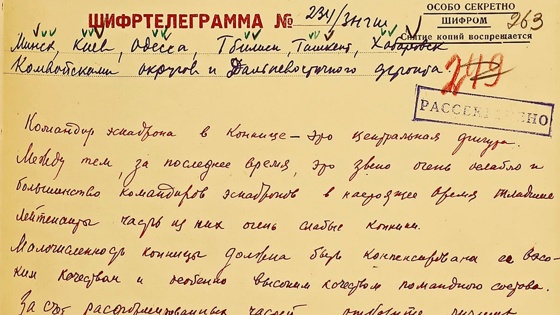 ОСОБО СЕКРЕТНО
ШИФРОМ
Снятие копий воспрещается
263
ШИФРТЕЛЕГРАММА № 234/знгш
Минск, Киев, Одесса, Тбилиси, Ташкент, Хабаровск
Комвойсками округов и Дальневосточного фронта
249
РАССЕКРЕЧЕНО
Командир эскадрона в коннице – это центральная фигура.
Между тем, за последнее время, это звено очень ослабло и
большинство командиров эскадронов в настоящее время младшие
лейтенанты часть из них очень слабые конники.
Малочисленность конницы должна быть компенсирована ее высо-
ким качеством и особенно высоким качеством командного состава.
За счет расформированных частей отобрать